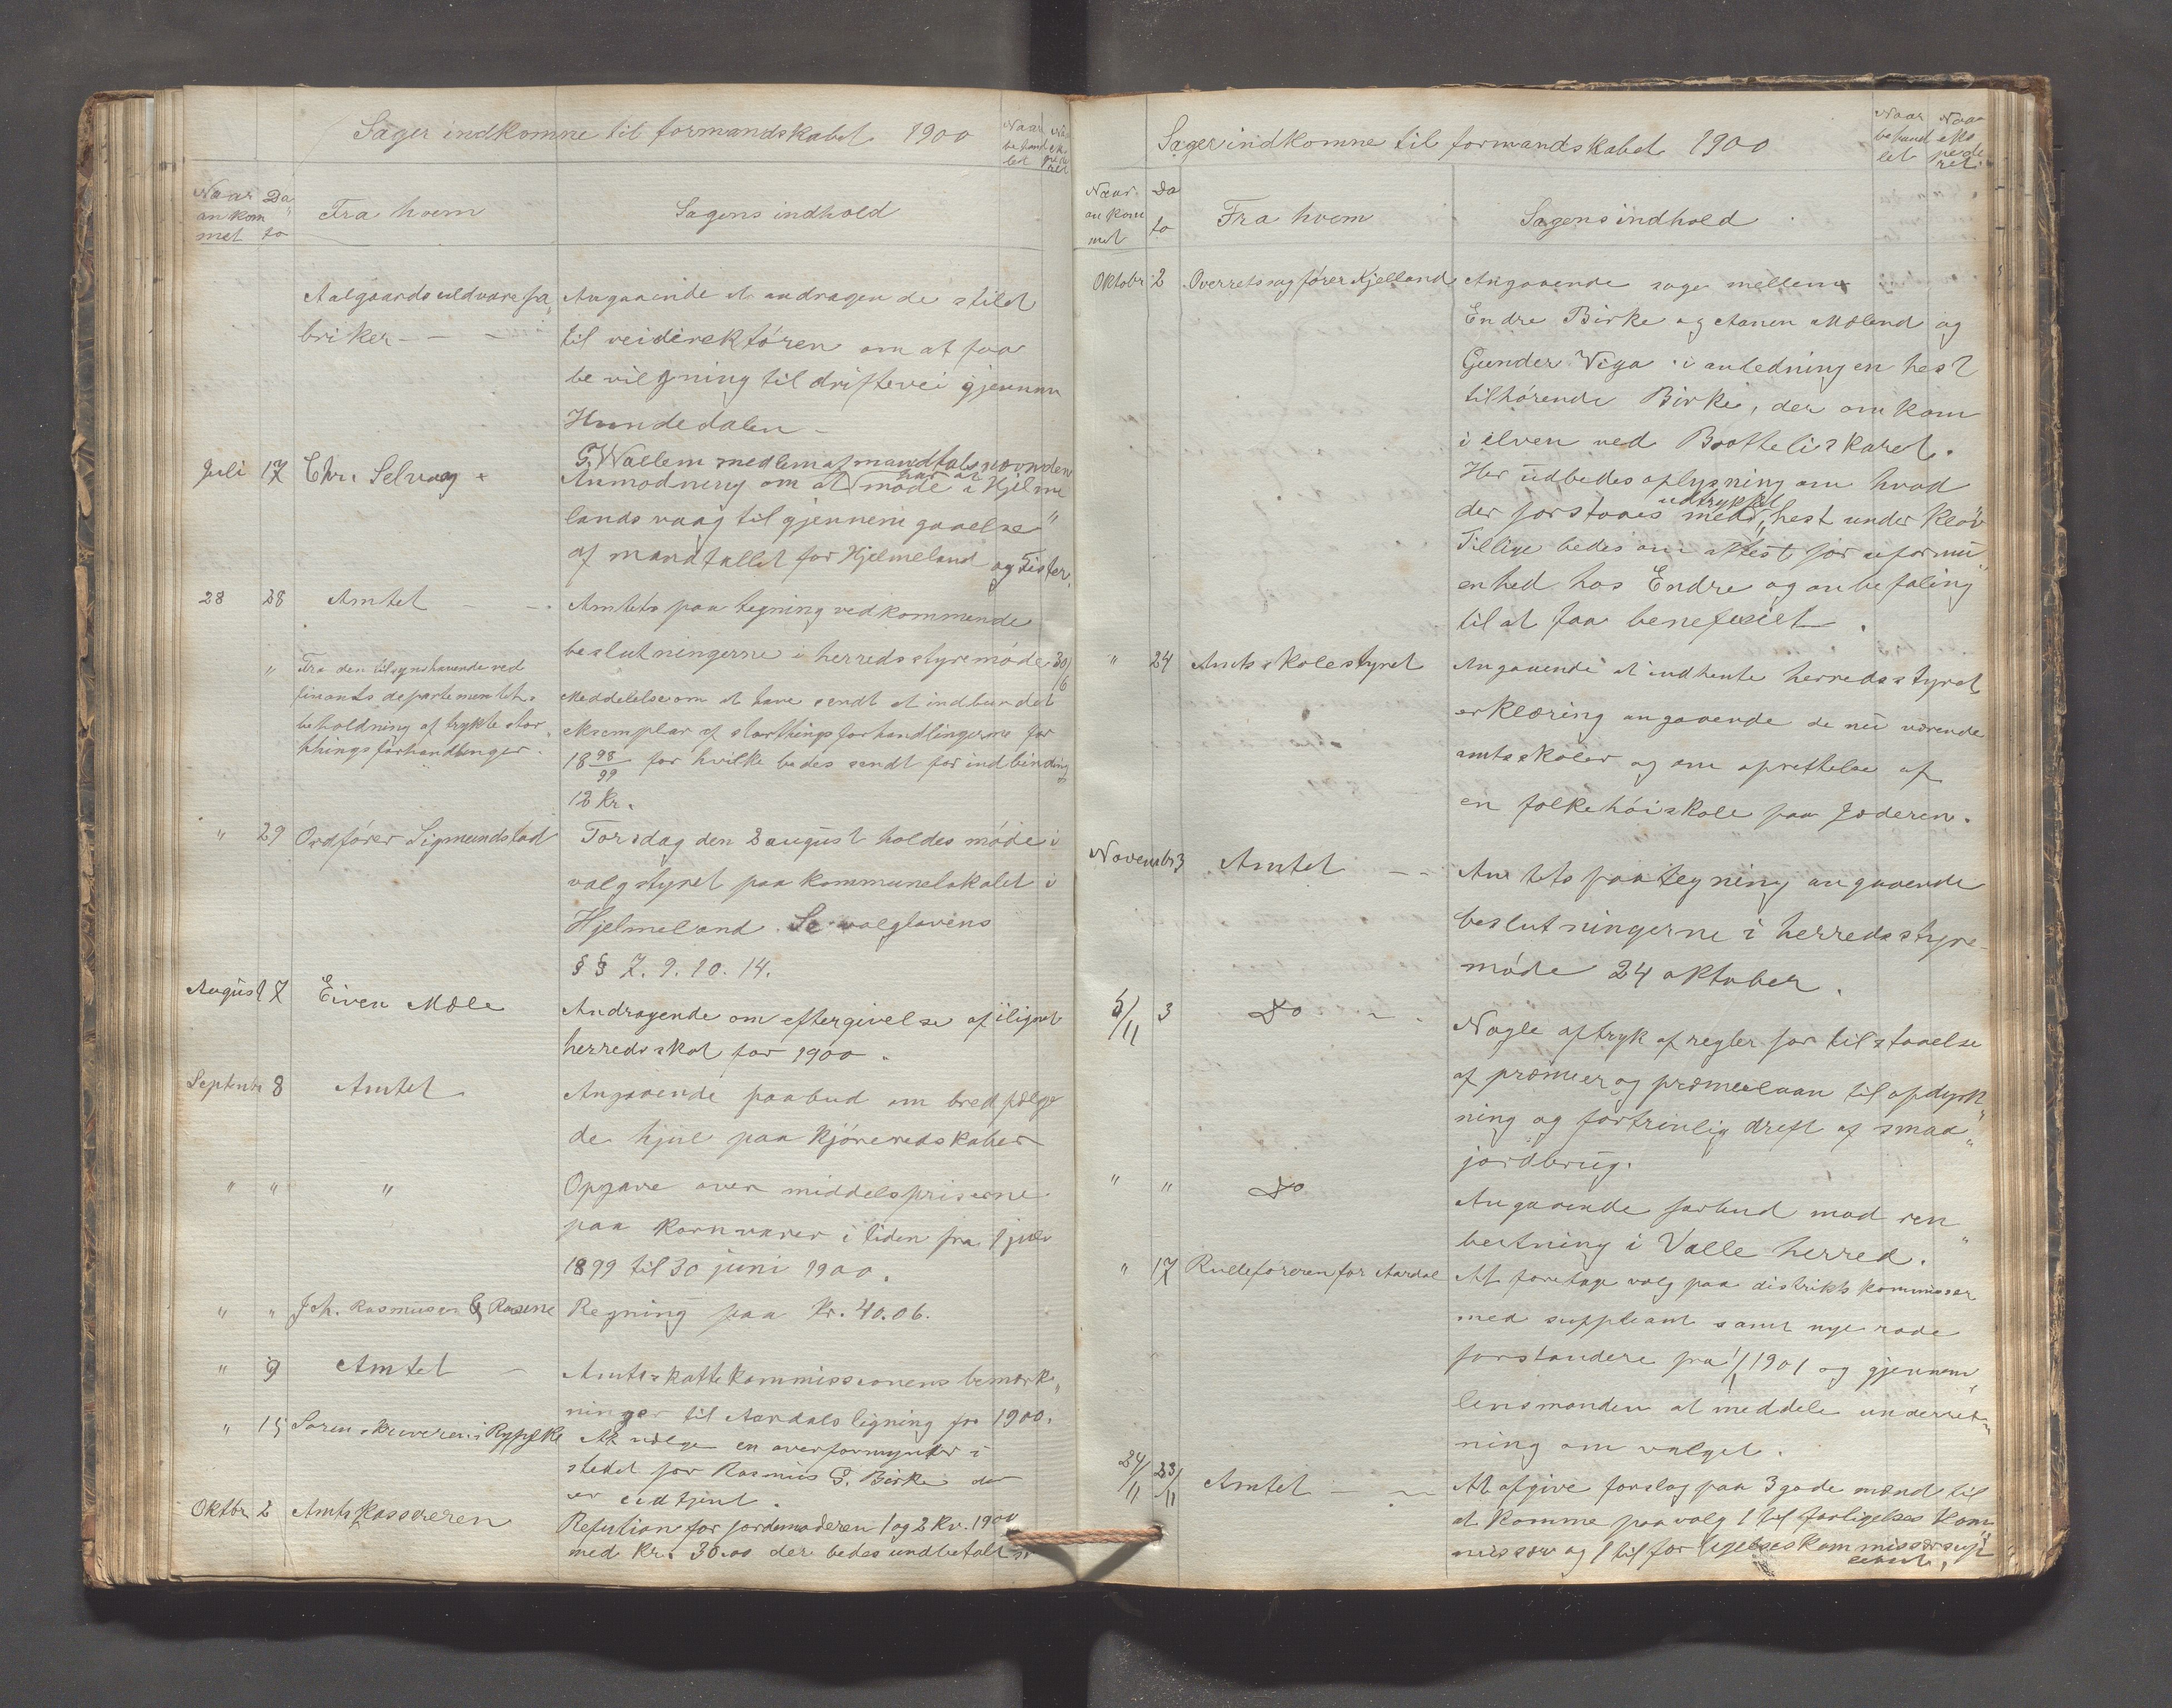 Sager indkomne til formandskabet 1900
Naar behandlet
Naar ekspederet
Naar ankommet
Dato
Fra hvem
Sagens indhold
Aalgaards uldvarefa„
briker - - -
Angaaende et andragende stilet
til veidirektøren om at faa
bevilgning til driftevei gjennem
Hundedalen -
Juli 17 Chr. Selvaag
T. Wallem medlem af mandtalsnævnden
Anmodning om at møde i Hjelme
lands vaag til gjennemgaaelse
af mandtallet for Hjelmeland og Fister.
28 28 Amtet - -
Amtets paategning vedkommende
beslutningerne i herredsstyremøde 30/6
" Fra den tilsynshavende ved
finantsdepartementets
beholdning af trykte stor„
thingsforhandlinger.
Meddelelse om at have sendt et indbundet
eksemplar af storthingsforhandlingerne for
1898/99 for hvilke bedes sendt for indbinding
12 Kr.
" 29 Ordfører Sigmundstad
Torsdag den 2 august holdes møde i
valgstyret paa kommunelokalet i
Hjelmeland. Se valglovens
§§ 7. 9. 10. 14.
August 7 Eiven Mæle
Andragende om eftergivelse af ilignet
herredsskat for 1900.
Septembr 8 Amtet
Angaaende paabud om bredfælge
de hjul paa kjøreredskaber
" " "
Opgave over middelspriserne
paa kornvarer i tiden fra 1 juli
1899 til 30 juni 1900.
" " Joh. Rasmusen & Racine
Regning paa Kr. 40.06.
" 9 Amtet -
Amtsskattekommissionens bemærk„
ninger til Aardals ligning for 1900.
" 15 Sorenskriveren i Ryfylke
At vælge en overformynder i
stedet for Rasmus G. Birke der
er udtjent.
Oktbr 2 Amtskassereren
Refusion for jordemoderen 1 og 2 Kv. 1900
med Kr. 30.00 der bedes indbetalt
Sager indkomne til formandskabet 1900
Naar behandlet
Naar ekspederet
Naar ankommet
Dato
Fra hvem
Sagens indhold
Oktobr 2 Overretssagfører Kjelland
Angaaende sage mellem
Endre Birke og Aanen Mæland og
Gunder Viga i anledning en hest
tilhørende Birke, der omkom
i elven ved Bratteliskaret.
Her udbedes oplysning om hvad
der forstaaes med udtrykket „hest under kløv
Tillige bedes om attest for uformu
enhed hos Endre og anbefaling
til at faa benefisiet.
" 24 Amtsskolestyret
Angaaende at indhente herredsstyret
erklæring angaaende de nu værende
amtsskoler og om oprettelse af
en folkehøiskole paa Jæderen.
Novembr 3 Amtet - -
Amtets paategning angaaende
beslutningerne i herredsstyre-
møde 24 oktober.
5/11 3 Do -
Nogle aftryk af regler for tilstaaelse
af præmier og præmielaan til opdyrk„
ning og fortrinlig drift af smaa„
jordbrug.
" " Do
Angaaende forbud mod ren„
beitning i Valle herred.
" 17 Rulleføreren for Aardal
At foretage valg paa distriktskommissær
med suppleant samt nye rode
forstandere fra 1/1 1901 og gjennem„
lensmanden at meddele underret„
ning om valget.
24/11 23/11 Amtet - -
At afgive forslag paa 3 gode mænd til
at komme paa valg 1 til forligelseskom
missær og 1 til forligelseskommissærsup
leant.